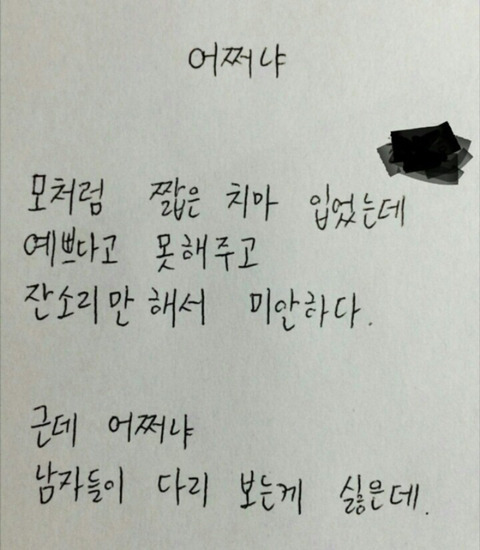 어쩌냐
모처럼 짧은 치마 입었는데
예쁘다고 못해주고
잔소리만해서 미안하다.
근데 어쩌냐
남자들이 다리 보는게 싫은데.